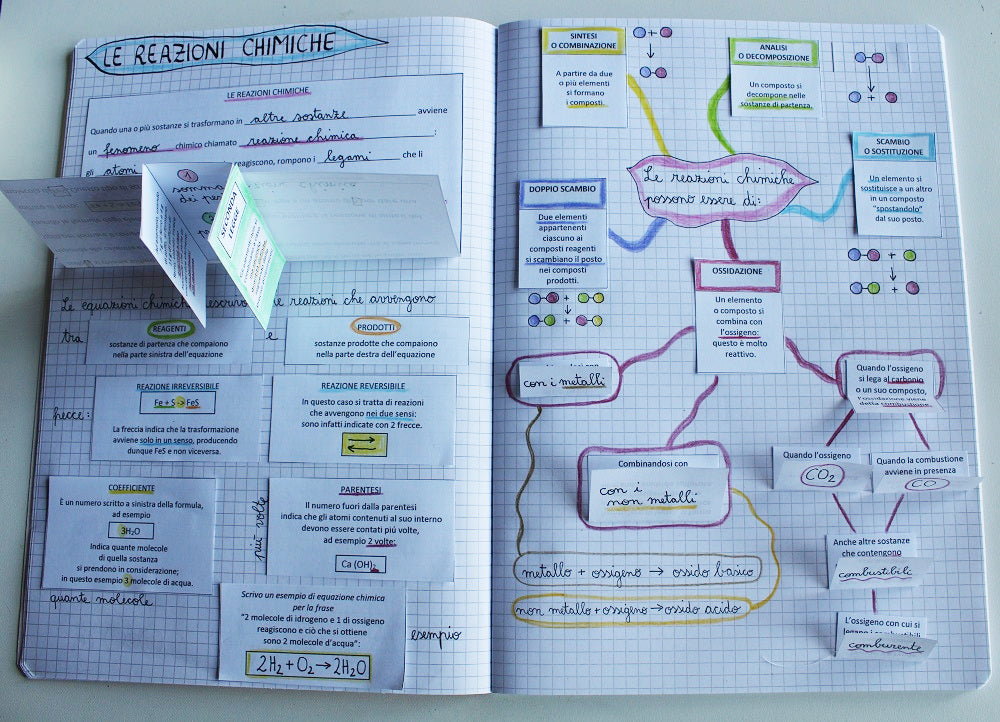 LE REAZIONI CHIMICHE
LE REAZIONI CHIMICHE
Quando una o più sostanze si trasformano in altre sostanze avviene
un fenomeno chimico chiamato reazione chimica :
gli atomi reagiscono, rompono i legami che li
1
somma
dei pes
SECONDA
LEGGE
Le equazioni chimiche le reazioni che avvengono
tra
REAGENTI
sostanze di partenza che compaiono
nella parte sinistra dell'equazione
e
PRODOTTI
sostanze prodotte che compaiono
nella parte destra dell'equazione
frecce:
REAZIONE IRREVERSIBILE
Fe + S -> FeS
La freccia indica che la trasformazione
avviene solo in un senso, producendo
dunque FeS e non viceversa.
REAZIONE REVERSIBILE
In questo caso si tratta di reazioni
che avvengono nei due sensi:
sono infatti indicate con 2 frecce.
COEFFICIENTE
È un numero scritto a sinistra della formula,
ad esempio
3H₂O
Indica quante molecole
di quella sostanza
si prendono in considerazione;
in questo esempio 3 molecole di acqua.
quante molecole
più volte
PARENTESI
Il numero fuori dalla parentesi
indica che gli atomi contenuti al suo interno
devono essere contati piú volte,
ad esempio 2 volte:
Ca (OH)₂
Scrivo un esempio di equazione chimica
per la frase
"2 molecole di idrogeno e 1 di ossigeno
reagiscono e ciò che si ottiene
sono 2 molecole d'acqua":
2H₂ + O₂ → 2H₂O
esempio
SINTESI
O COMBINAZIONE
A partire da due
o più elementi
si formano
i composti.
+
ANALISI
O DECOMPOSIZIONE
Un composto si
decompone nelle
sostanze di partenza.
+
SCAMBIO
O SOSTITUZIONE
Un elemento si
sostituisce a un altro
in un composto
"spostandolo"
dal suo posto.
+
+
Le reazioni chimiche
possono essere di:
DOPPIO SCAMBIO
Due elementi
appartenenti
ciascuno ai
composti reagenti
si scambiano il posto
nei composti
prodotti.
+
+
OSSIDAZIONE
Un elemento
o composto si
combina con
l'ossigeno:
questo è molto
reattivo.
con i metalli
Combinandosi con
con i
non metalli
metallo + ossigeno → ossido basico
non metallo + ossigeno → ossido acido
Quando l'ossigeno
si lega al carbonio
o un suo composto,
l'ossidazione viene
detta combustione.
Quando l'ossigeno
CO₂
Quando la combustione
avviene in presenza
CO
Anche altre sostanze
che contengono
combustibili
L'ossigeno con cui si
legano i combustibili
comburente